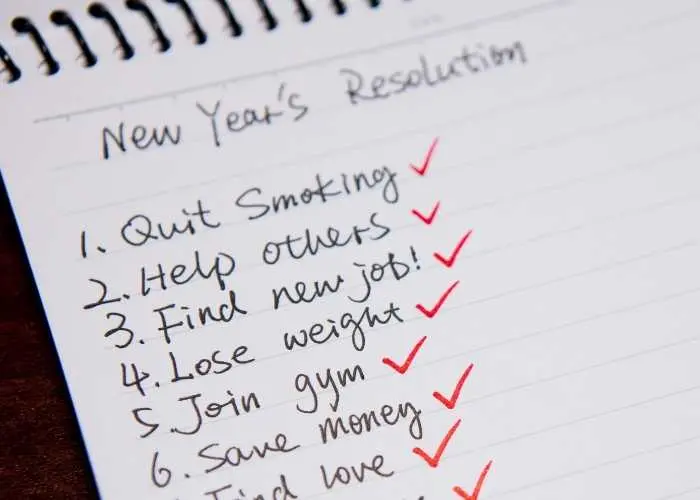 New Year's Resolution
1. Quit Smoking ✓
2. Help others ✓
3. Find new job! ✓
4. Lose weight ✓
5. Join gym ✓
6. Save money ✓
Find love ✓